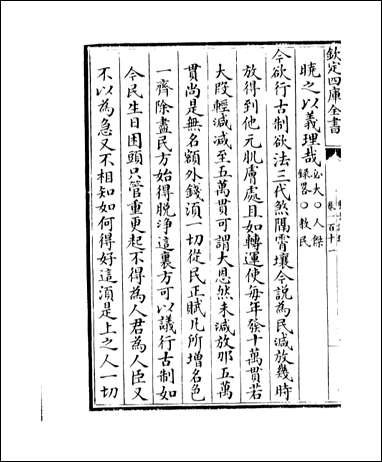 欽定四庫全書
卷一百十一
曉之以義理哉必大○人傑録畧○教民
今欲行古制欲法三代煞隔霄壤今說為民減放幾時
放得到他元肌膚處且如轉運使每年發十萬貫若
大段輕減減至五萬貫可謂大恩然未減放那五萬
貫尚是無名額外錢須一切從民正賦凡所增名色
一齊除盡民方始得脫淨這裏方可以議行古制如
今民生日困頭只管重更起不得為人君為人臣又
不以為急又不相知如何得好這須是上之人一切